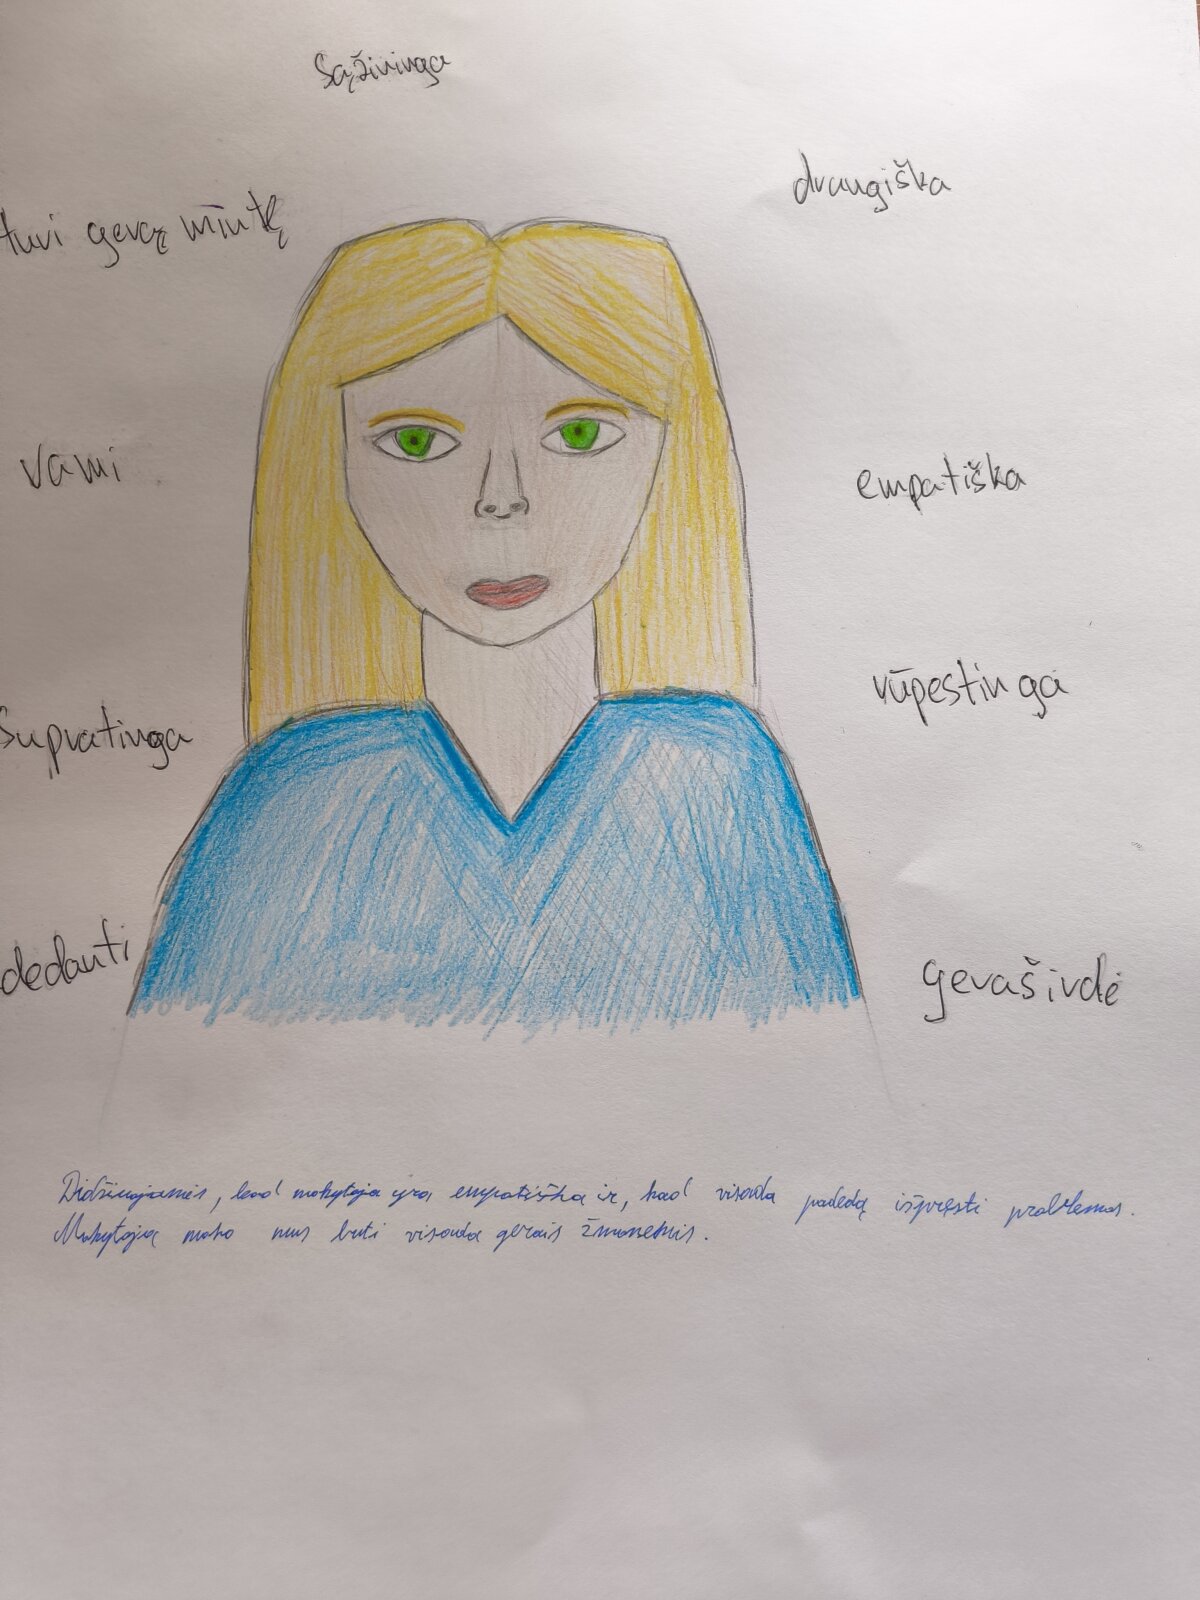 Sąžininga
draugiška
turi gerą mintę
rami
empatiška
rūpestinga
Supratinga
dedanti
geraširdė
Didžiuojamės, kad mokytoja yra empatiška ir, kad visada padeda išspręsti problemas.
Mokytoja moko mus būti visada gerais žmonėmis.